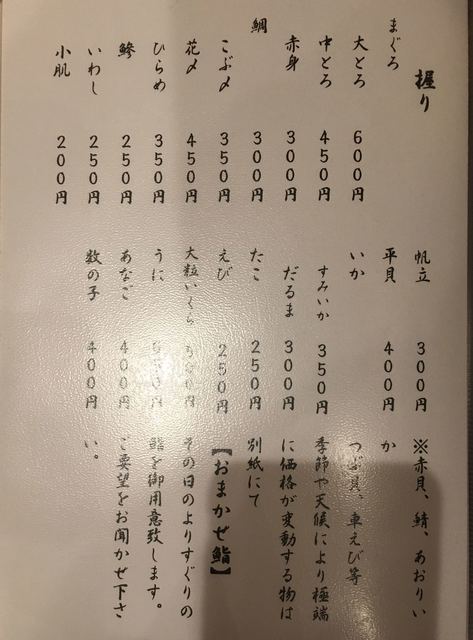 握り
まぐろ
大とろ 600円
中とろ 450円
赤身 300円
鯛 300円
こぶ〆 350円
花〆 450円
ひらめ 350円
鯵 250円
いわし 250円
小肌 200円
帆立 300円
平貝 400円
いか
すみいか 350円
だるま 300円
たこ 250円
えび 250円
大粒いくら
うに
あなご 400円
数の子 400円
※赤貝、鯖、あおりい
か
つぶ貝、車えび等
季節や天候により極端
に価格が変動する物は
別紙にて
【おまかせ鮨】
その日のよりすぐりの
鮨を御用意致します。
ご要望をお聞かせ下さ
い。